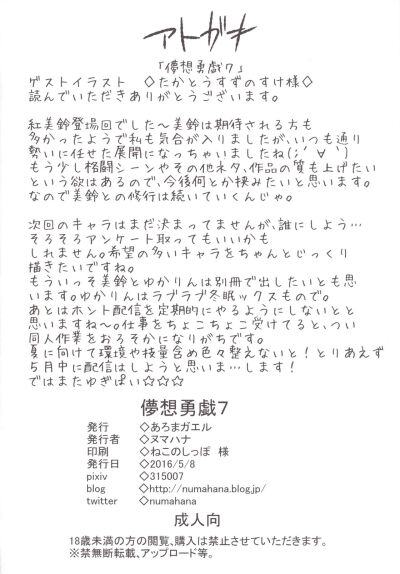 アトガキ
「儚想勇戯7」
ゲストイラスト ◇たかとうすずのすけ様◇
読んでいただきありがとうございます。
紅美鈴登場回でした～美鈴は期待される方も
多かったようで私も気合が入りましたが、いつも通り
勢いに任せた展開になっちゃいましたね(;´∀`)
もう少し格闘シーンやその他ネタ、作品の質も上げたい
という欲はあるので、今後何とか挟みたいと思います。
なので美鈴との修行は続いていくんじゃ。
次回のキャラはまだ決まってませんが、誰にしよう…
そろそろアンケート取ってもいいかも
しれません。希望の多いキャラをちゃんとじっくり
描きたいですね。
もういっそ美鈴とゆかりんは別冊で出したいとも思
います。ゆかりんはラブラブ冬眠ックスもので。
あとはホント配信を定期的にやるようにしないとと
思いますね～。仕事をちょこちょこ受けてると、つい
同人作業をおろそかになりがちです。
夏に向けて環境や技量含め色々整えないと!とりあえず
5月中に配信はしようと思いま…します!
ではまたゆぎぱい☆☆☆
儚想勇戯7
発行 ◇あろまガエル
発行者 ◇ヌマハナ
印刷 ◇ねこのしっぽ 様
発行日 ◇2016/5/8
pixiv ◇315007
blog ◇http://numahana.blog.jp/
twitter ◇numahana
成人向
18歳未満の方の閲覧、購入は禁止させていただきます。
※禁無断転載、アップロード等。